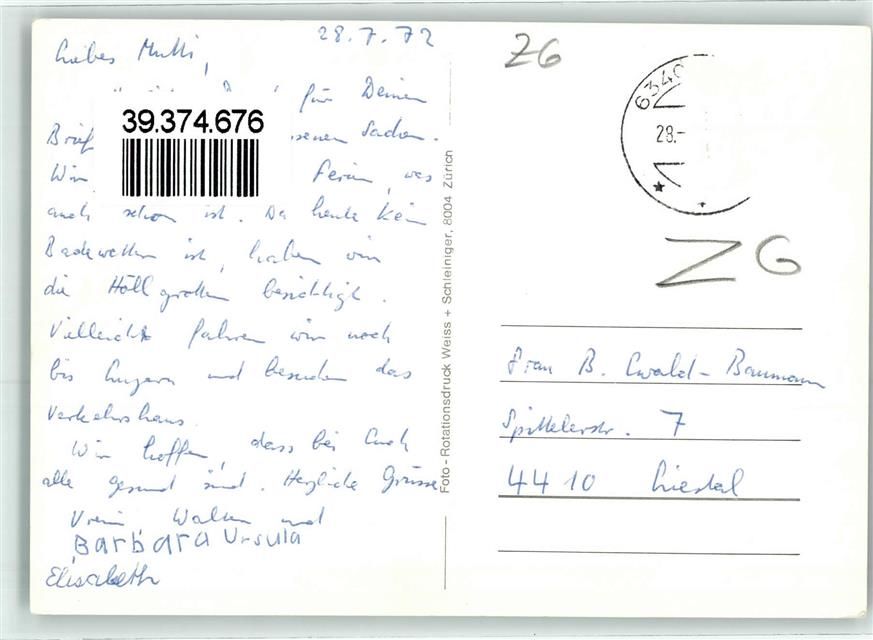 28.7.72
Liebes Mutti,
für Deinen
Brief senen Sachen.
Wir Ferien, was
auch schön ist. Da heute kein
Badewetter ist, haben wir
die Höllgrotten besichtigt.
Vielleicht fahren wir noch
bis Luzern und besuchen das
Verkehrshaus.
Wir hoffen, dass bei Euch
alle gesund sind. Herzliche Grüsse
Vreni Walter und
Barbara Ursula
Elisabeth
39.374.676
Foto-Rotationsdruck Weiss + Schleiniger, 8004 Zürich
ZG
6340
28.-
ZG
Frau B. Ewald-Baumann
Spittelerstr. 7
4410 Liestal